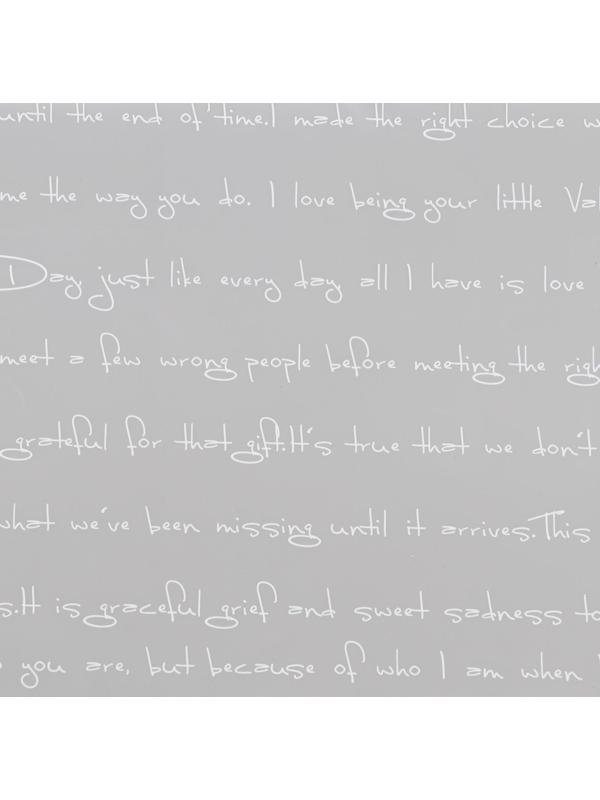 until the end of time.I made the right choice w
me the way you do. I love being your little Val
Day, just like every day all I have is love
meet a few wrong people before meeting the righ
grateful for that gift.It's true that we don't
what we've been missing until it arrives.This
s.It is graceful grief and sweet sadness to
you are, but because of who I am when